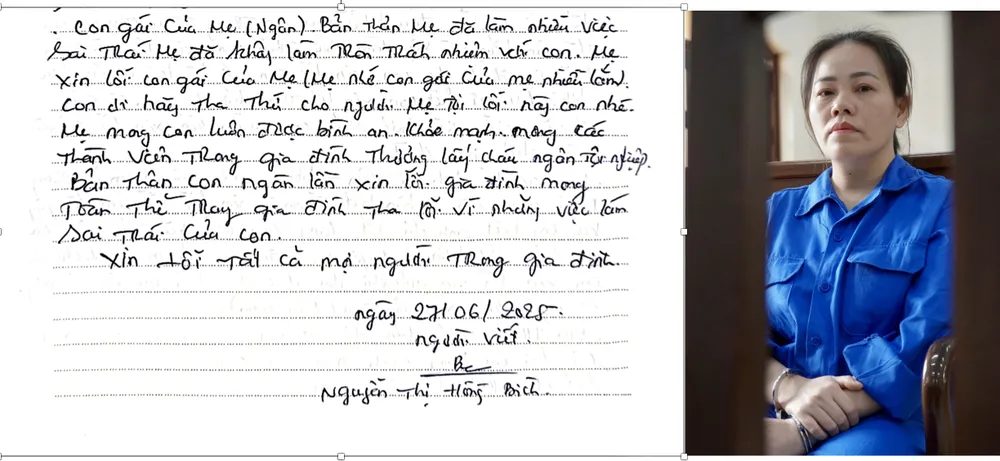 . Con gái Của Mẹ (Ngân). Bản thân Mẹ đã làm nhiều việc
Sai Trái Mẹ đã không làm Tròn Trách nhiệm với con. Mẹ
xin lỗi con gái Của Mẹ (Mẹ nhé con gái Của mẹ nhiều lắm)
Con ơi hãy Tha Thứ cho người Mẹ Tội lỗi này con nhé.
Mẹ mong con luôn được bình an. Khỏe mạnh. mong các
Thành Viên Trong gia đình Thương lấy cháu ngân Tội nghiệp.
Bản Thân con ngàn lần xin lỗi gia đình mong
Toàn Thể gia đình Tha lỗi Vì những việc làm
Sai Trái Của con.
Xin lỗi Tất cả mọi người Trong gia đình.
ngày 27/06/2025.
người viết.
Nguyễn Thị Hồng Bích.